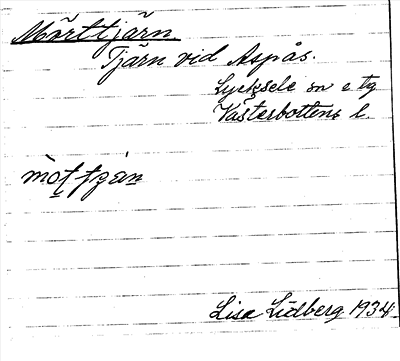 Mörttjärn
Tjärn vid Aspås.
Lycksele sn o tg
Västerbottens l.
Lisa Lidberg 1934